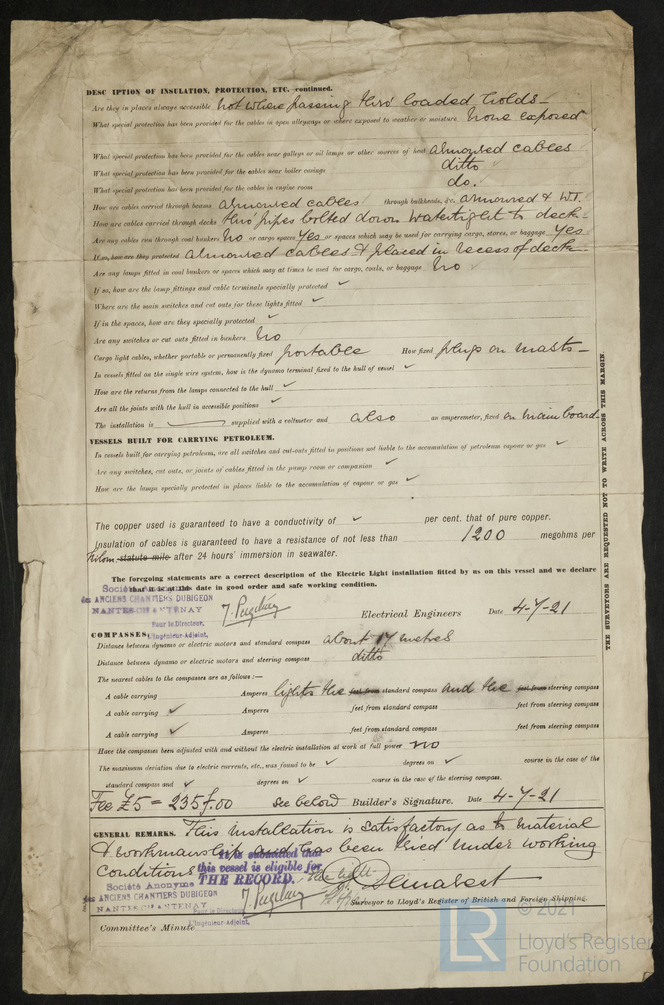 DESC IPTION OF INSULATION, PROTECTION, ETC. continued.
Are they in places always accessible not where passing thro' loaded holds -
What special protection has been provided for the cables in open alleyways or where exposed to weather or moisture none exposed
What special protection has been provided for the cables near galleys or oil lamps or other sources of heat armoured cables
What special protection has been provided for the cables near boiler casings ditto
What special protection has been provided for the cables in engine room do.
How are cables carried through beams armoured cables through bulkheads, &c. armoured & W.T.
How are cables carried through decks thro pipes bolted down watertight to deck -
Are any cables run through coal bunkers no or cargo spaces yes or spaces which may be used for carrying cargo, stores, or baggage yes
If so, how are they protected armoured cables & placed in recess of deck
Are any lamps fitted in coal bunkers or spaces which may at times be used for cargo, coals, or baggage no ✓
If so, how are the lamp fittings and cable terminals specially protected ✓
Where are the main switches and cut outs for these lights fitted ✓
If in the spaces, how are they specially protected ✓
Are any switches or cut outs fitted in bunkers no
Cargo light cables, whether portable or permanently fixed portable How fixed plugs on masts -
In vessels fitted on the single wire system, how is the dynamo terminal fixed to the hull of vessel ✓
How are the returns from the lamps connected to the hull ✓
Are all the joints with the hull in accessible positions ✓
The installation is supplied with a voltmeter and also an amperemeter, fixed on main board
VESSELS BUILT FOR CARRYING PETROLEUM.
In vessels built for carrying petroleum, are all switches and cut-outs fitted in positions not liable to the accumulation of petroleum vapour or gas ✓
Are any switches, cut outs, or joints of cables fitted in the pump room or companion ✓
How are the lamps specially protected in places liable to the accumulation of vapour or gas ✓
The copper used is guaranteed to have a conductivity of ✓ per cent. that of pure copper.
Insulation of cables is guaranteed to have a resistance of not less than 1200 megohms per
kilom statute mile after 24 hours' immersion in seawater.
The foregoing statements are a correct description of the Electric Light installation fitted by us on this vessel and we declare
that it is at this date in good order and safe working condition.
Société Anonyme
des ANCIENS CHANTIERS DUBIGEON
NANTES-CHANTENAY
Pour le Directeur,
L'Ingénieur-Adjoint,
Electrical Engineers Date 4-7-21
COMPASSES.
Distance between dynamo or electric motors and standard compass about 17 metres
Distance between dynamo or electric motors and steering compass ditto
The nearest cables to the compasses are as follows :-
A cable carrying Amperes lights the feet from standard compass and the feet from steering compass
A cable carrying ✓ Amperes feet from standard compass feet from steering compass
A cable carrying ✓ Amperes feet from standard compass feet from steering compass
Have the compasses been adjusted with and without the electric installation at work at full power no
The maximum deviation due to electric currents, etc., was found to be ✓ degrees on ✓ course in the case of the
standard compass and ✓ degrees on ✓ course in the case of the steering compass.
Fee £5 = 235 f.00 see below Builder's Signature. Date 4-7-21
GENERAL REMARKS. This installation is satisfactory as to material
& workmanship and has been tried under working
conditions
It is submitted that
this vessel is eligible for
THE RECORD. Elec light
Société Anonyme
des ANCIENS CHANTIERS DUBIGEON
NANTES-CHANTENAY
Pour le Directeur
L'Ingénieur-Adjoint,
Surveyor to Lloyd's Register of British and Foreign Shipping.
Committee's Minute
THE SURVEYORS ARE REQUESTED NOT TO WRITE ACROSS THIS MARGIN.
© 2021
LR
Lloyd's Register
Foundation